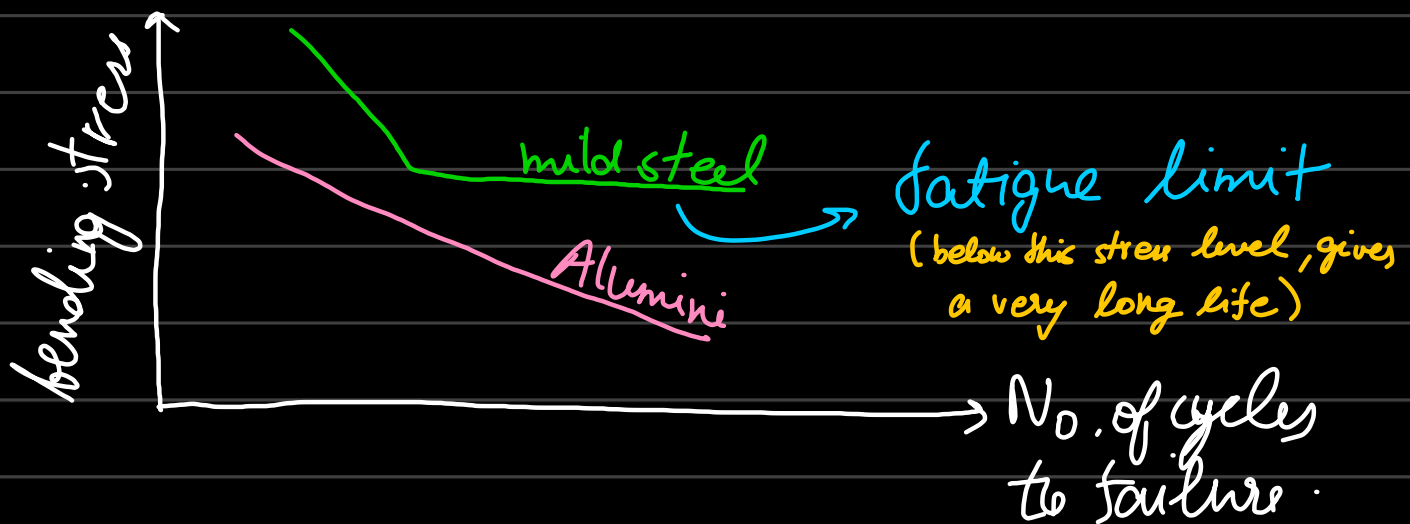 bending stress
mild steel
Allumini
fatigue limit
(below this stress level, gives
a very long life)
No. of cycles
to failure.